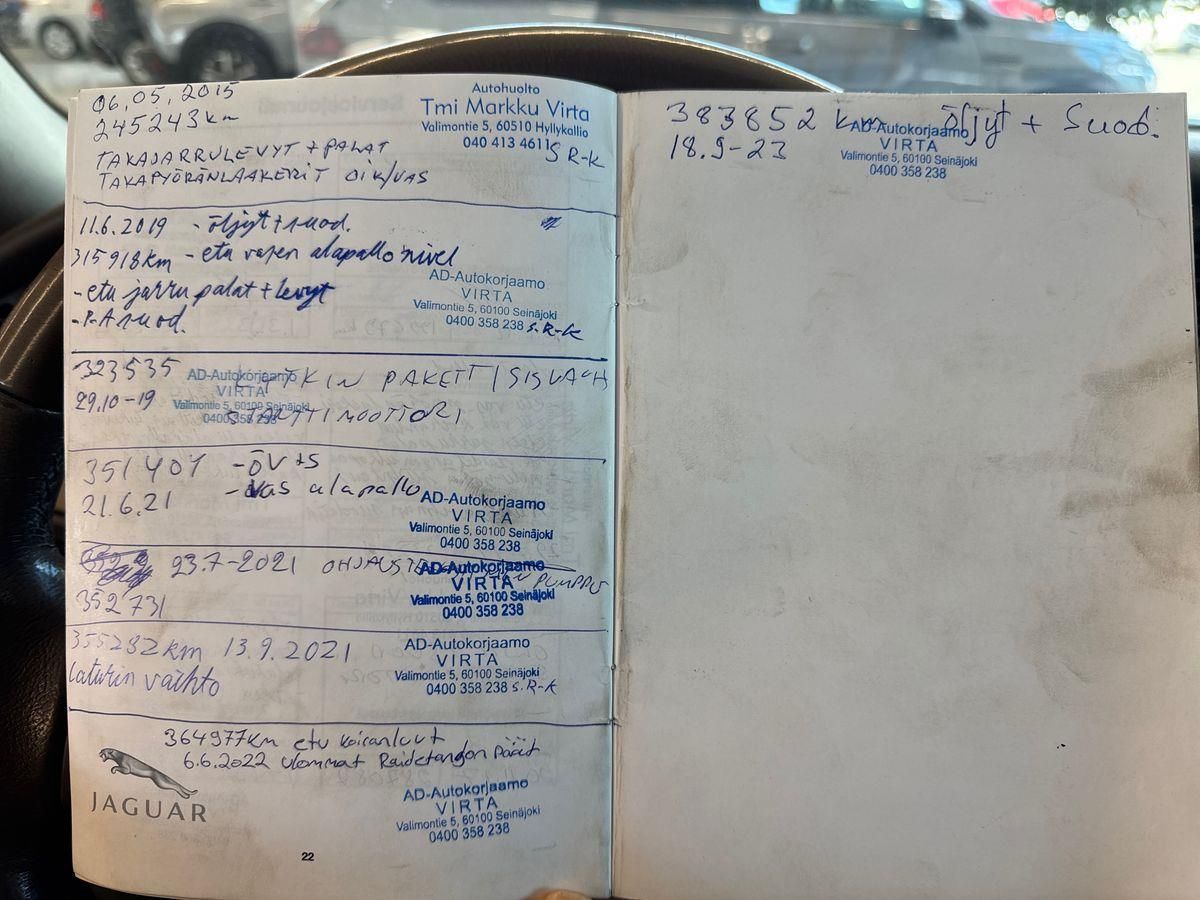 06.05.2015
245243km
TAKAJARRULEVYT + PALAT
TAKAPYÖRÄNLAAKERIT OIK/VAS
Autohuolto
Tmi Markku Virta
Valimontie 5, 60510 Hyllykallio
040 413 4611
S R-K
11.6.2019 - öljyt + suod.
315918km - etu vasen alapallo nivel
- etu jarru palat + levyt
- P-A suod.
AD-Autokorjaamo
VIRTA
Valimontie 5, 60100 Seinäjoki
0400 358 238 S.R-K
323535
29.10-19
AD-Autokorjaamo
VIRTA
Valimontie 5, 60100 Seinäjoki
0400 358 238
PAKETTI
STARTTIMOOTTORI
351401 - ÖV+S
21.6.21 - vas alapallo
AD-Autokorjaamo
VIRTA
Valimontie 5, 60100 Seinäjoki
0400 358 238
23.7-2021 PUMPPU
352731
AD-Autokorjaamo
VIRTA
Valimontie 5, 60100 Seinäjoki
0400 358 238
355282km 13.9.2021
Laturin vaihto
AD-Autokorjaamo
VIRTA
Valimontie 5, 60100 Seinäjoki
0400 358 238 S.R-K
364977km etu koiranluut
6.6.2022 ulommat Raidetangon päät
AD-Autokorjaamo
VIRTA
Valimontie 5, 60100 Seinäjoki
0400 358 238
JAGUAR
22
383852 km öljyt + Suod.
18.9-23
AD-Autokorjaamo
VIRTA
Valimontie 5, 60100 Seinäjoki
0400 358 238